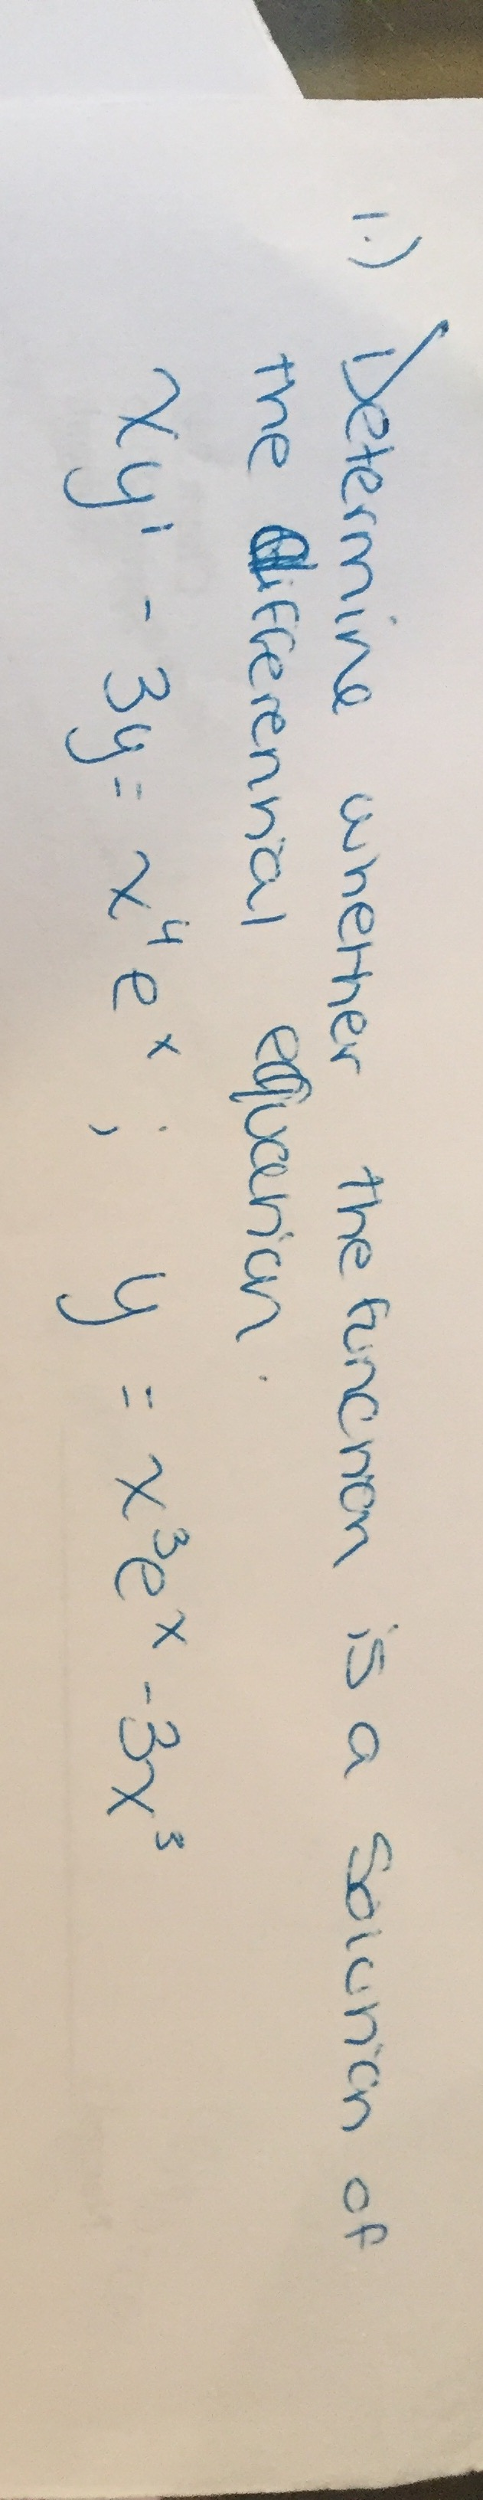 1.) Determine whether the function is a solution of
the differential equation.
xy' - 3y = x⁴eˣ ; y = x³eˣ - 3x³